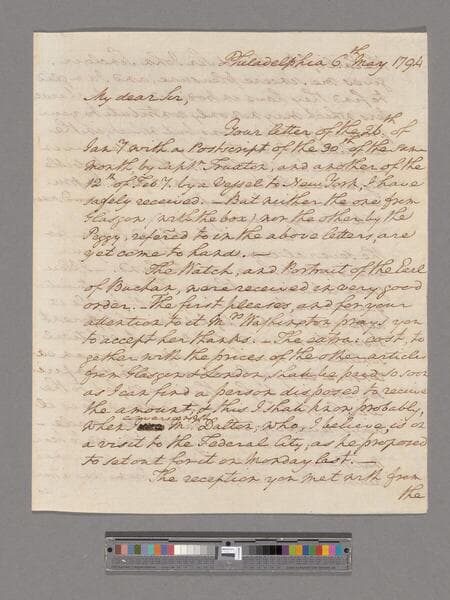 Philadelphia 6th May 1794
My dear Sir,
Your letter of the 26th of
Jany. with a Postscript of the 30th of the same
month, by Captn. Truxten, and another of the
12th of Feby. by a Vessel to New York, I have
safely received. — But neither the one from
Glasgow (with the box) nor the other by the
Peggy, refered to in the above letters, are
yet come to hand. —
The Watch, and Portrait of the Earl
of Buchan, were received in very good
order. — The first pleases, and for your
attention to it Mrs Washington prays you
to accept her thanks. — The extra: cost, to
gether with the prices of the other articles
from Glasgow & London, shall be paid so soon
as I can find a person disposed to receive
the amount, & this I shall know, probably,
when Mr. Dalton, who, I believe, is on
a visit to the Federal City, as he proposed
to set out for it on Monday last. —
The reception you met with from
the